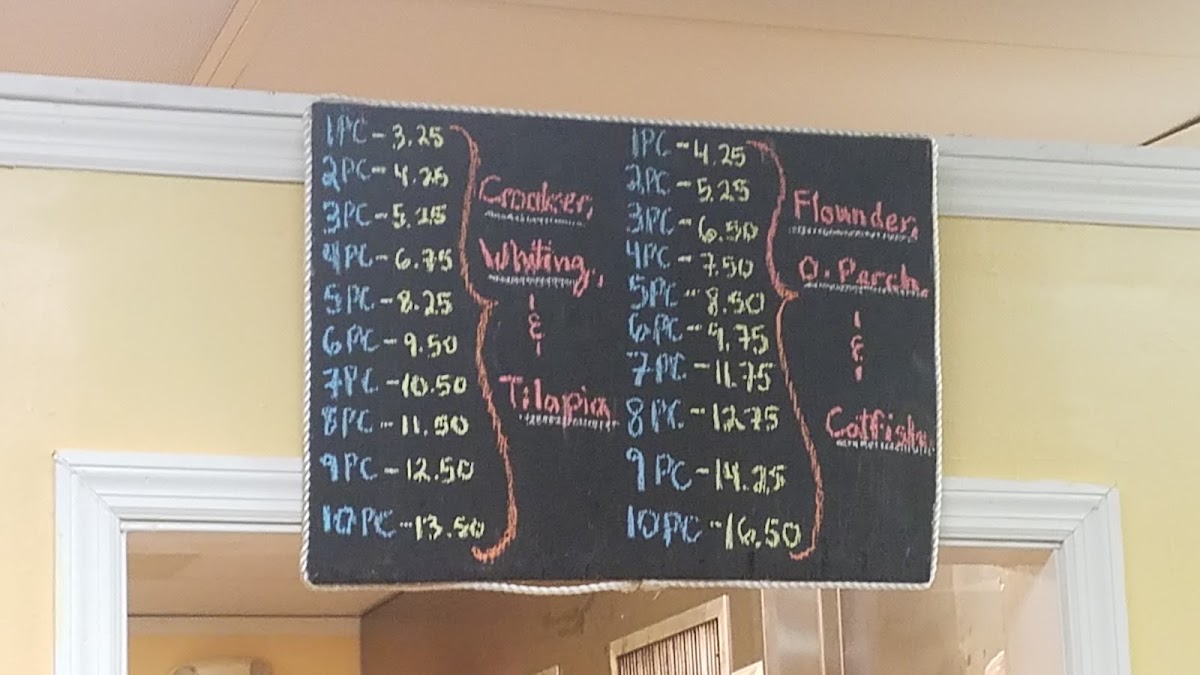 1PC-3.25
2PC-4.25
3PC-5.25
4PC-6.75
5PC-8.25
6PC-9.50
7PC-10.50
8PC-11.50
9PC-12.50
10PC-13.50
Croaker,
Whiting,
&
Tilapia
1PC-4.25
2PC-5.25
3PC-6.50
4PC-7.50
5PC-8.50
6PC-9.75
7PC-11.75
8PC-12.75
9PC-14.25
10PC-16.50
Flounder,
O. Perch,
&
Catfish